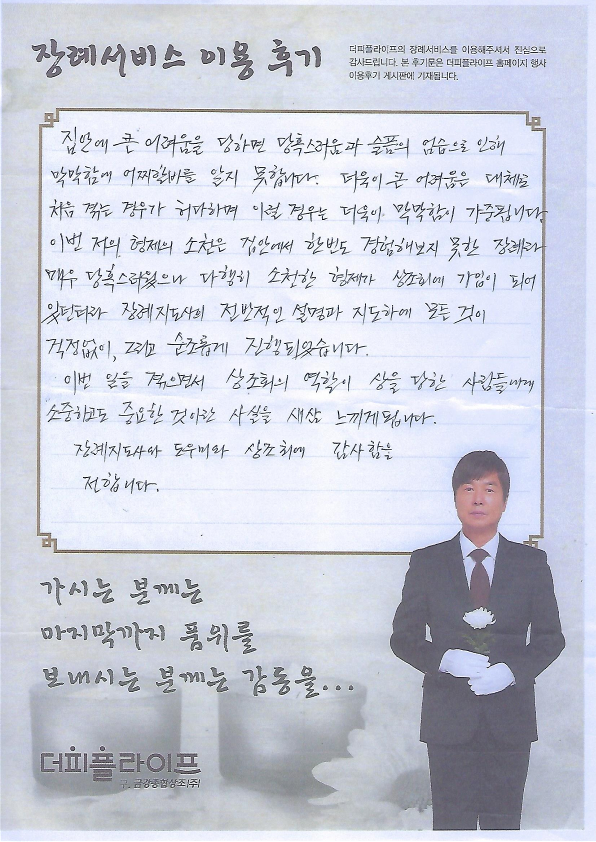 장례서비스 이용 후기
더피플라이프의 장례서비스를 이용해주셔서 진심으로
감사드립니다. 본 후기문은 더피플라이프 홈페이지 행사
이용후기 게시판에 기재됩니다.
집안에 큰 어려움을 당하면 당혹스러움과 슬픔의 엄습으로 인해
막막함에 어찌할바를 알지 못합니다. 더욱이 큰 어려움은 대체로
처음 겪는 경우가 허다하며 이럴 경우는 더욱이 막막함이 가중됩니다.
이번 저의 형제의 소천은 집안에서 한번도 경험해보지 못한 장례라
매우 당혹스러웠으나 다행히 소천한 형제가 상조회에 가입이 되어
있던터라 장례지도사의 전반적인 설명과 지도하에 모든 것이
걱정없이, 그리고 순조롭게 진행되었습니다.
이번 일을 겪으면서 상조회의 역할이 상을 당한 사람들에게
소중하고도 중요한 것이란 사실을 새삼 느끼게됩니다.
장례지도사와 도우미와 상조회에 감사함을
전합니다.
가시는 분께는
마지막까지 품위를
보내시는 분께는 감동을...
더피플라이프
구. 금강종합상조(주)